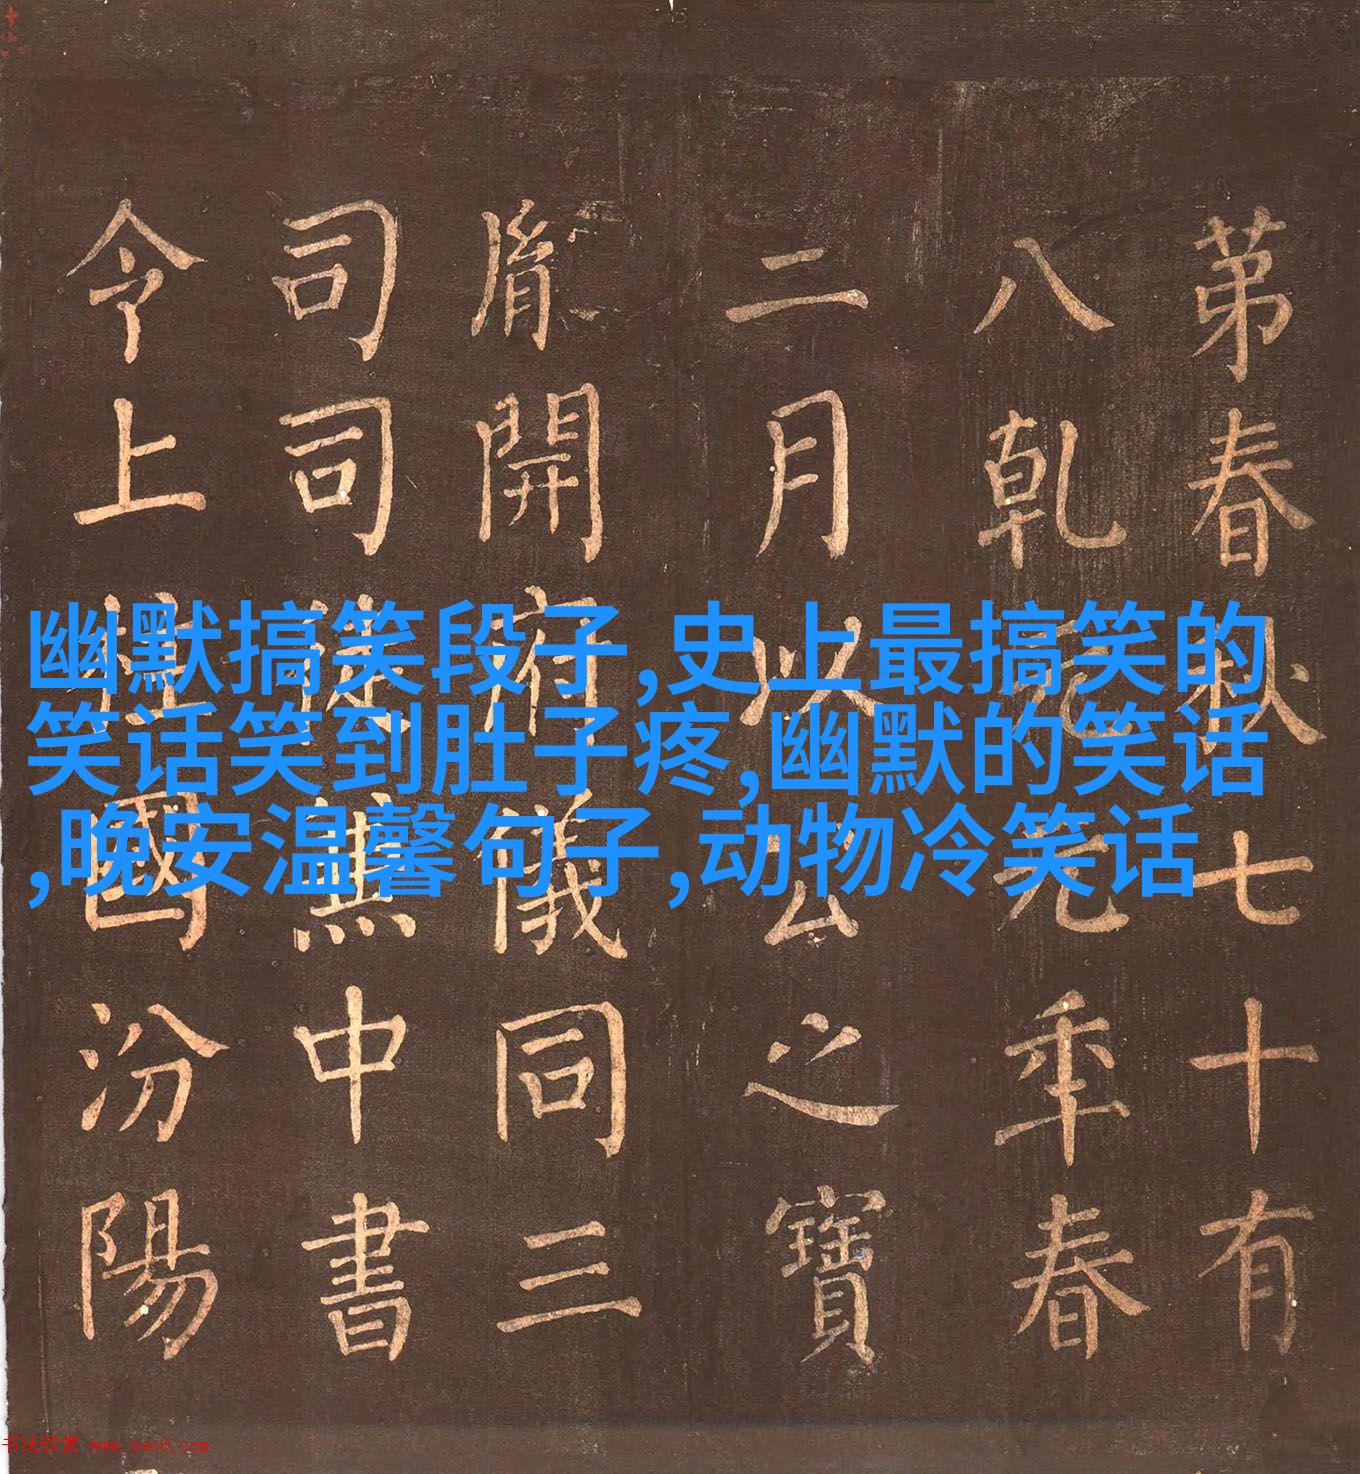 苐春秋七十有
八乾元元年春
二月以公之寶
胤開府儀同三
司司徒兼中書
令上柱國汾陽
幽默搞笑段子,史上最搞笑的
笑话笑到肚子疼,幽默的笑话
,晚安温馨句子,动物冷笑话
书法欣赏 www.yac8.com